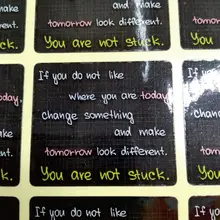 and make
tomorrow look different.
You are not stuck.
If you do not like
where you are today,
change something
and make
tomorrow look different.
You are not stuck.
If you do not like